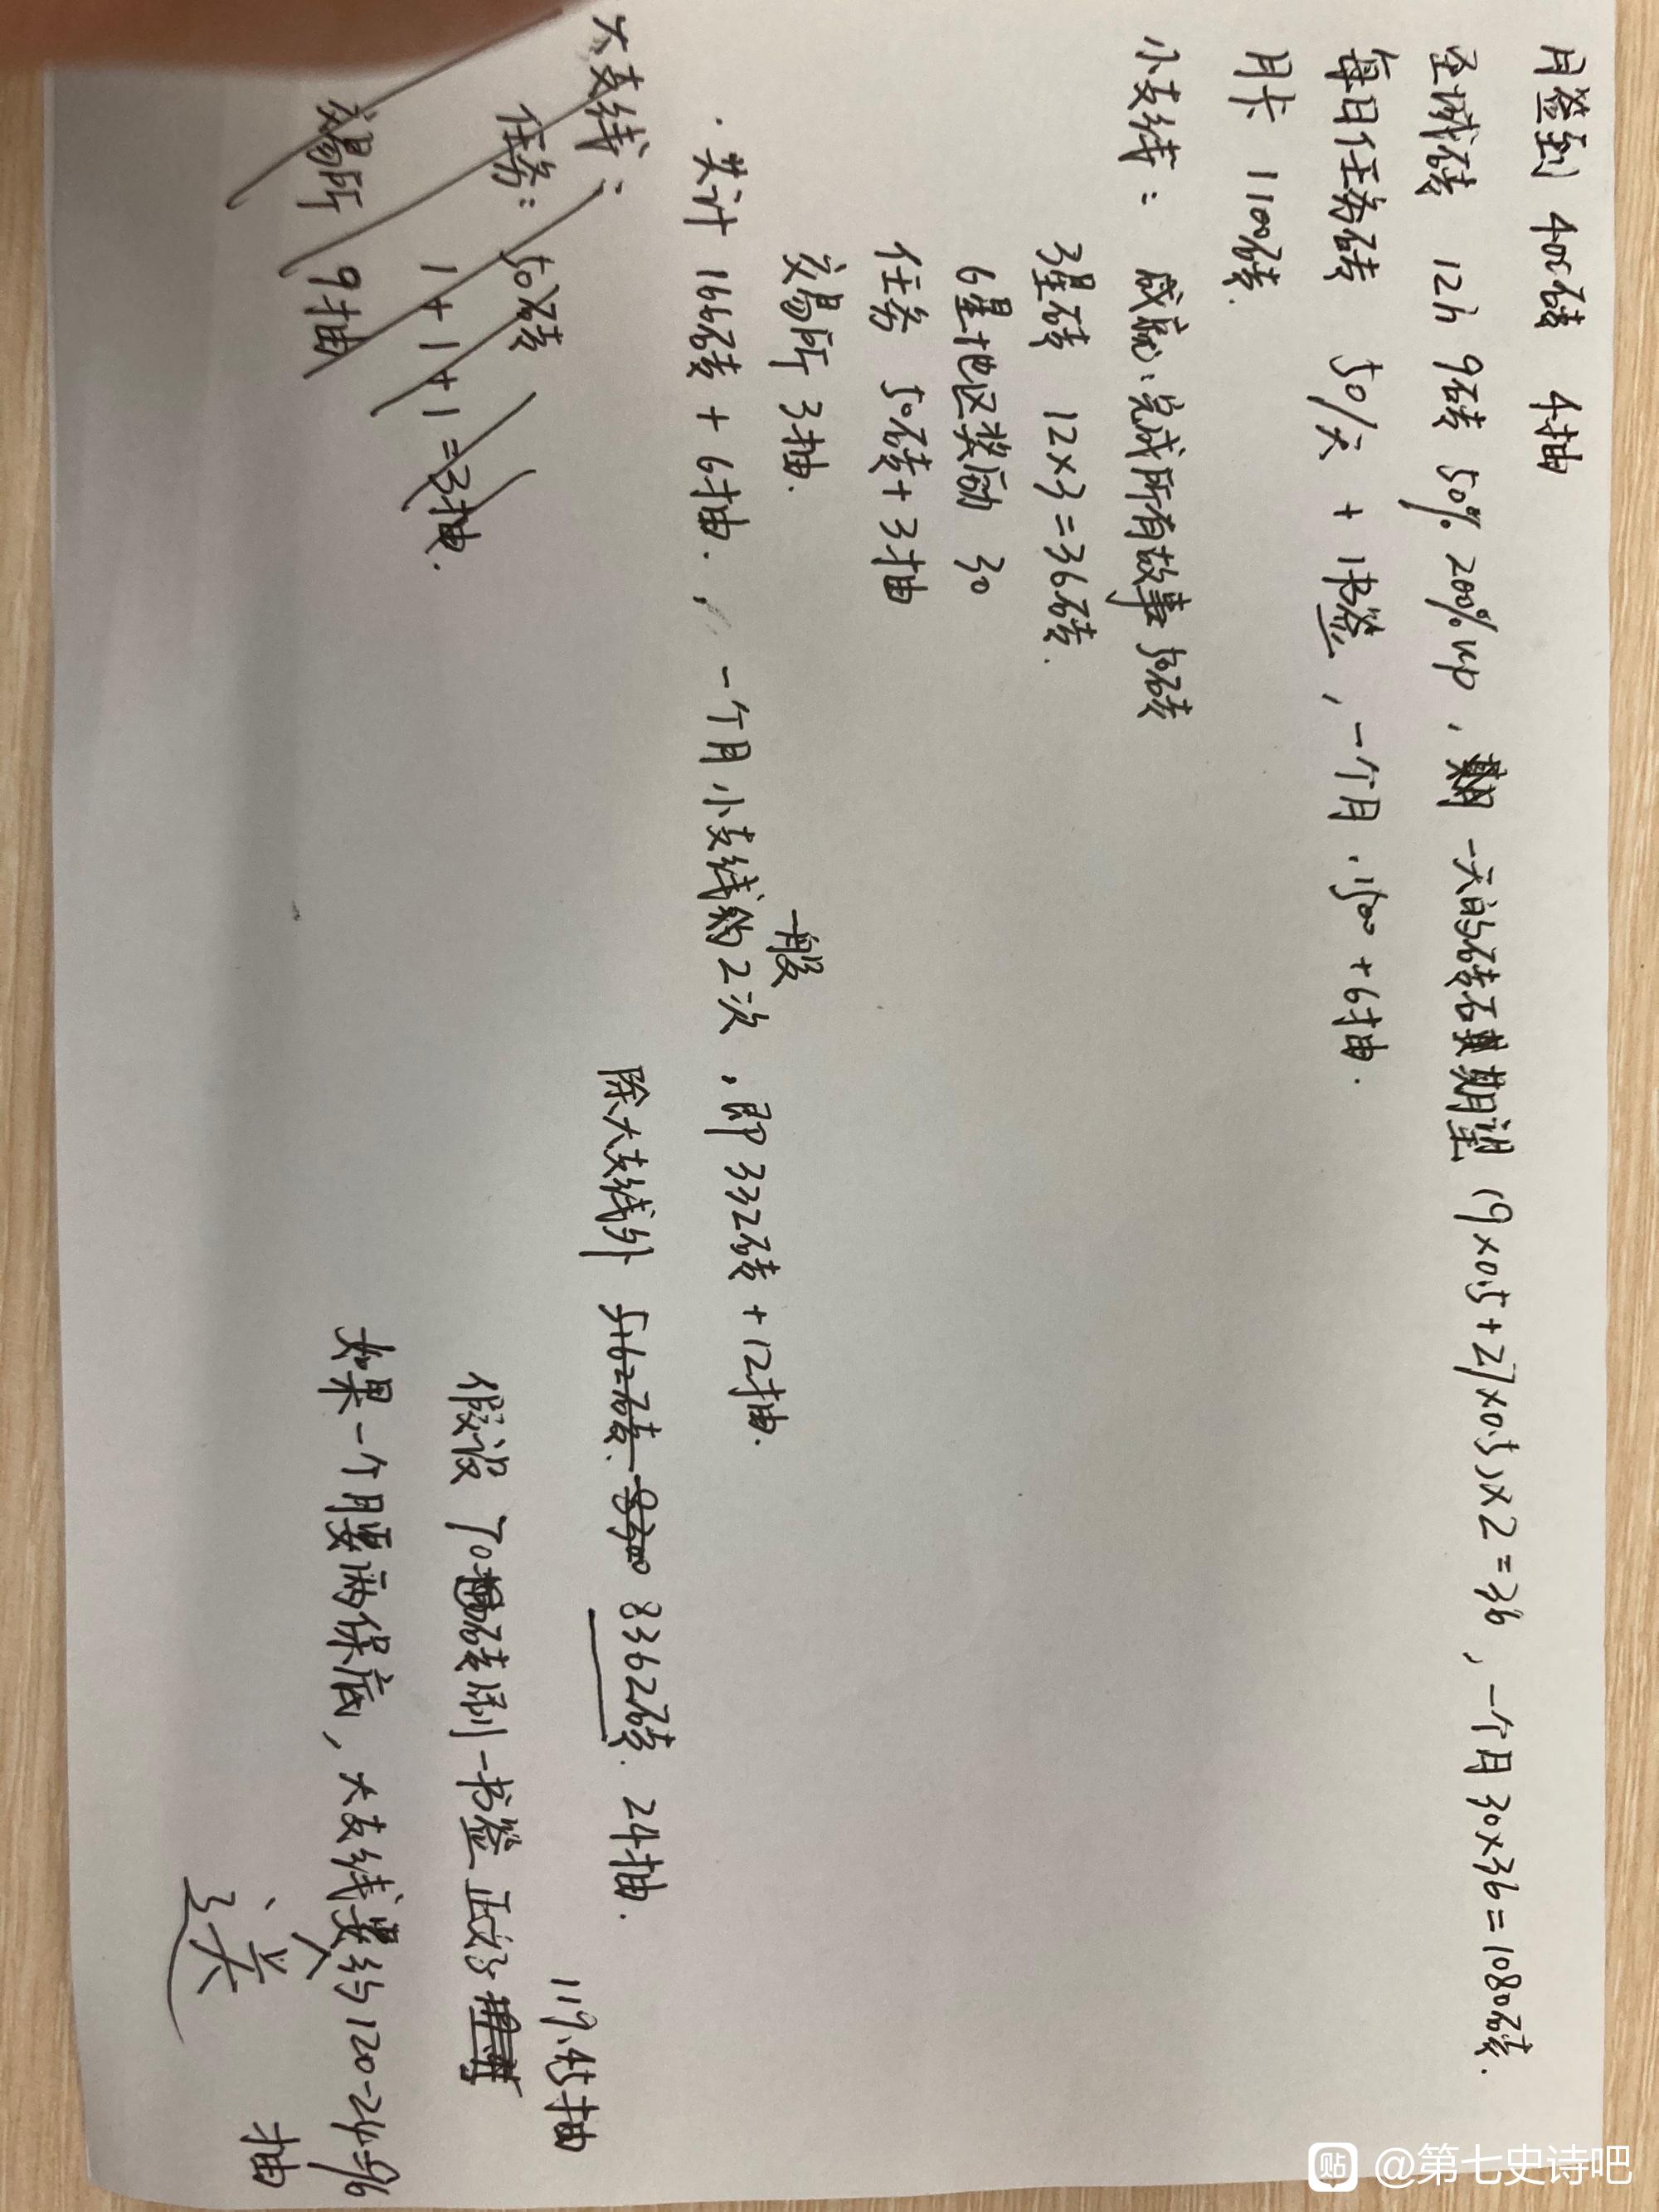 月签到 400砖 4抽
圣域砖 12h 9砖 50% 200%up，一天的砖石期望 (9×0.5+27×0.5)×2=36，一个月30×36=1080砖.
每日任务砖 50/天 + 1书签，一个月.1500+6抽.
月卡 1100砖.
小支线：成就：完成所有故事 50砖
3星砖 12×3=36砖.
6星地区奖励 30
任务 50砖+3抽
交易所 3抽.
. 共计 166砖+6抽.，一个月小支线一般2次，即332砖+12抽.
大支线：
任务：50砖
1+1+1=3抽.
交易所 9抽
除大支线外 5162砖. 8362砖. 24抽.
119.45抽
假设 70砖刷一书签 正好
如果一个月要两保底，大支线要给120-24=96抽
、兰
3天
贴 @第七史诗吧